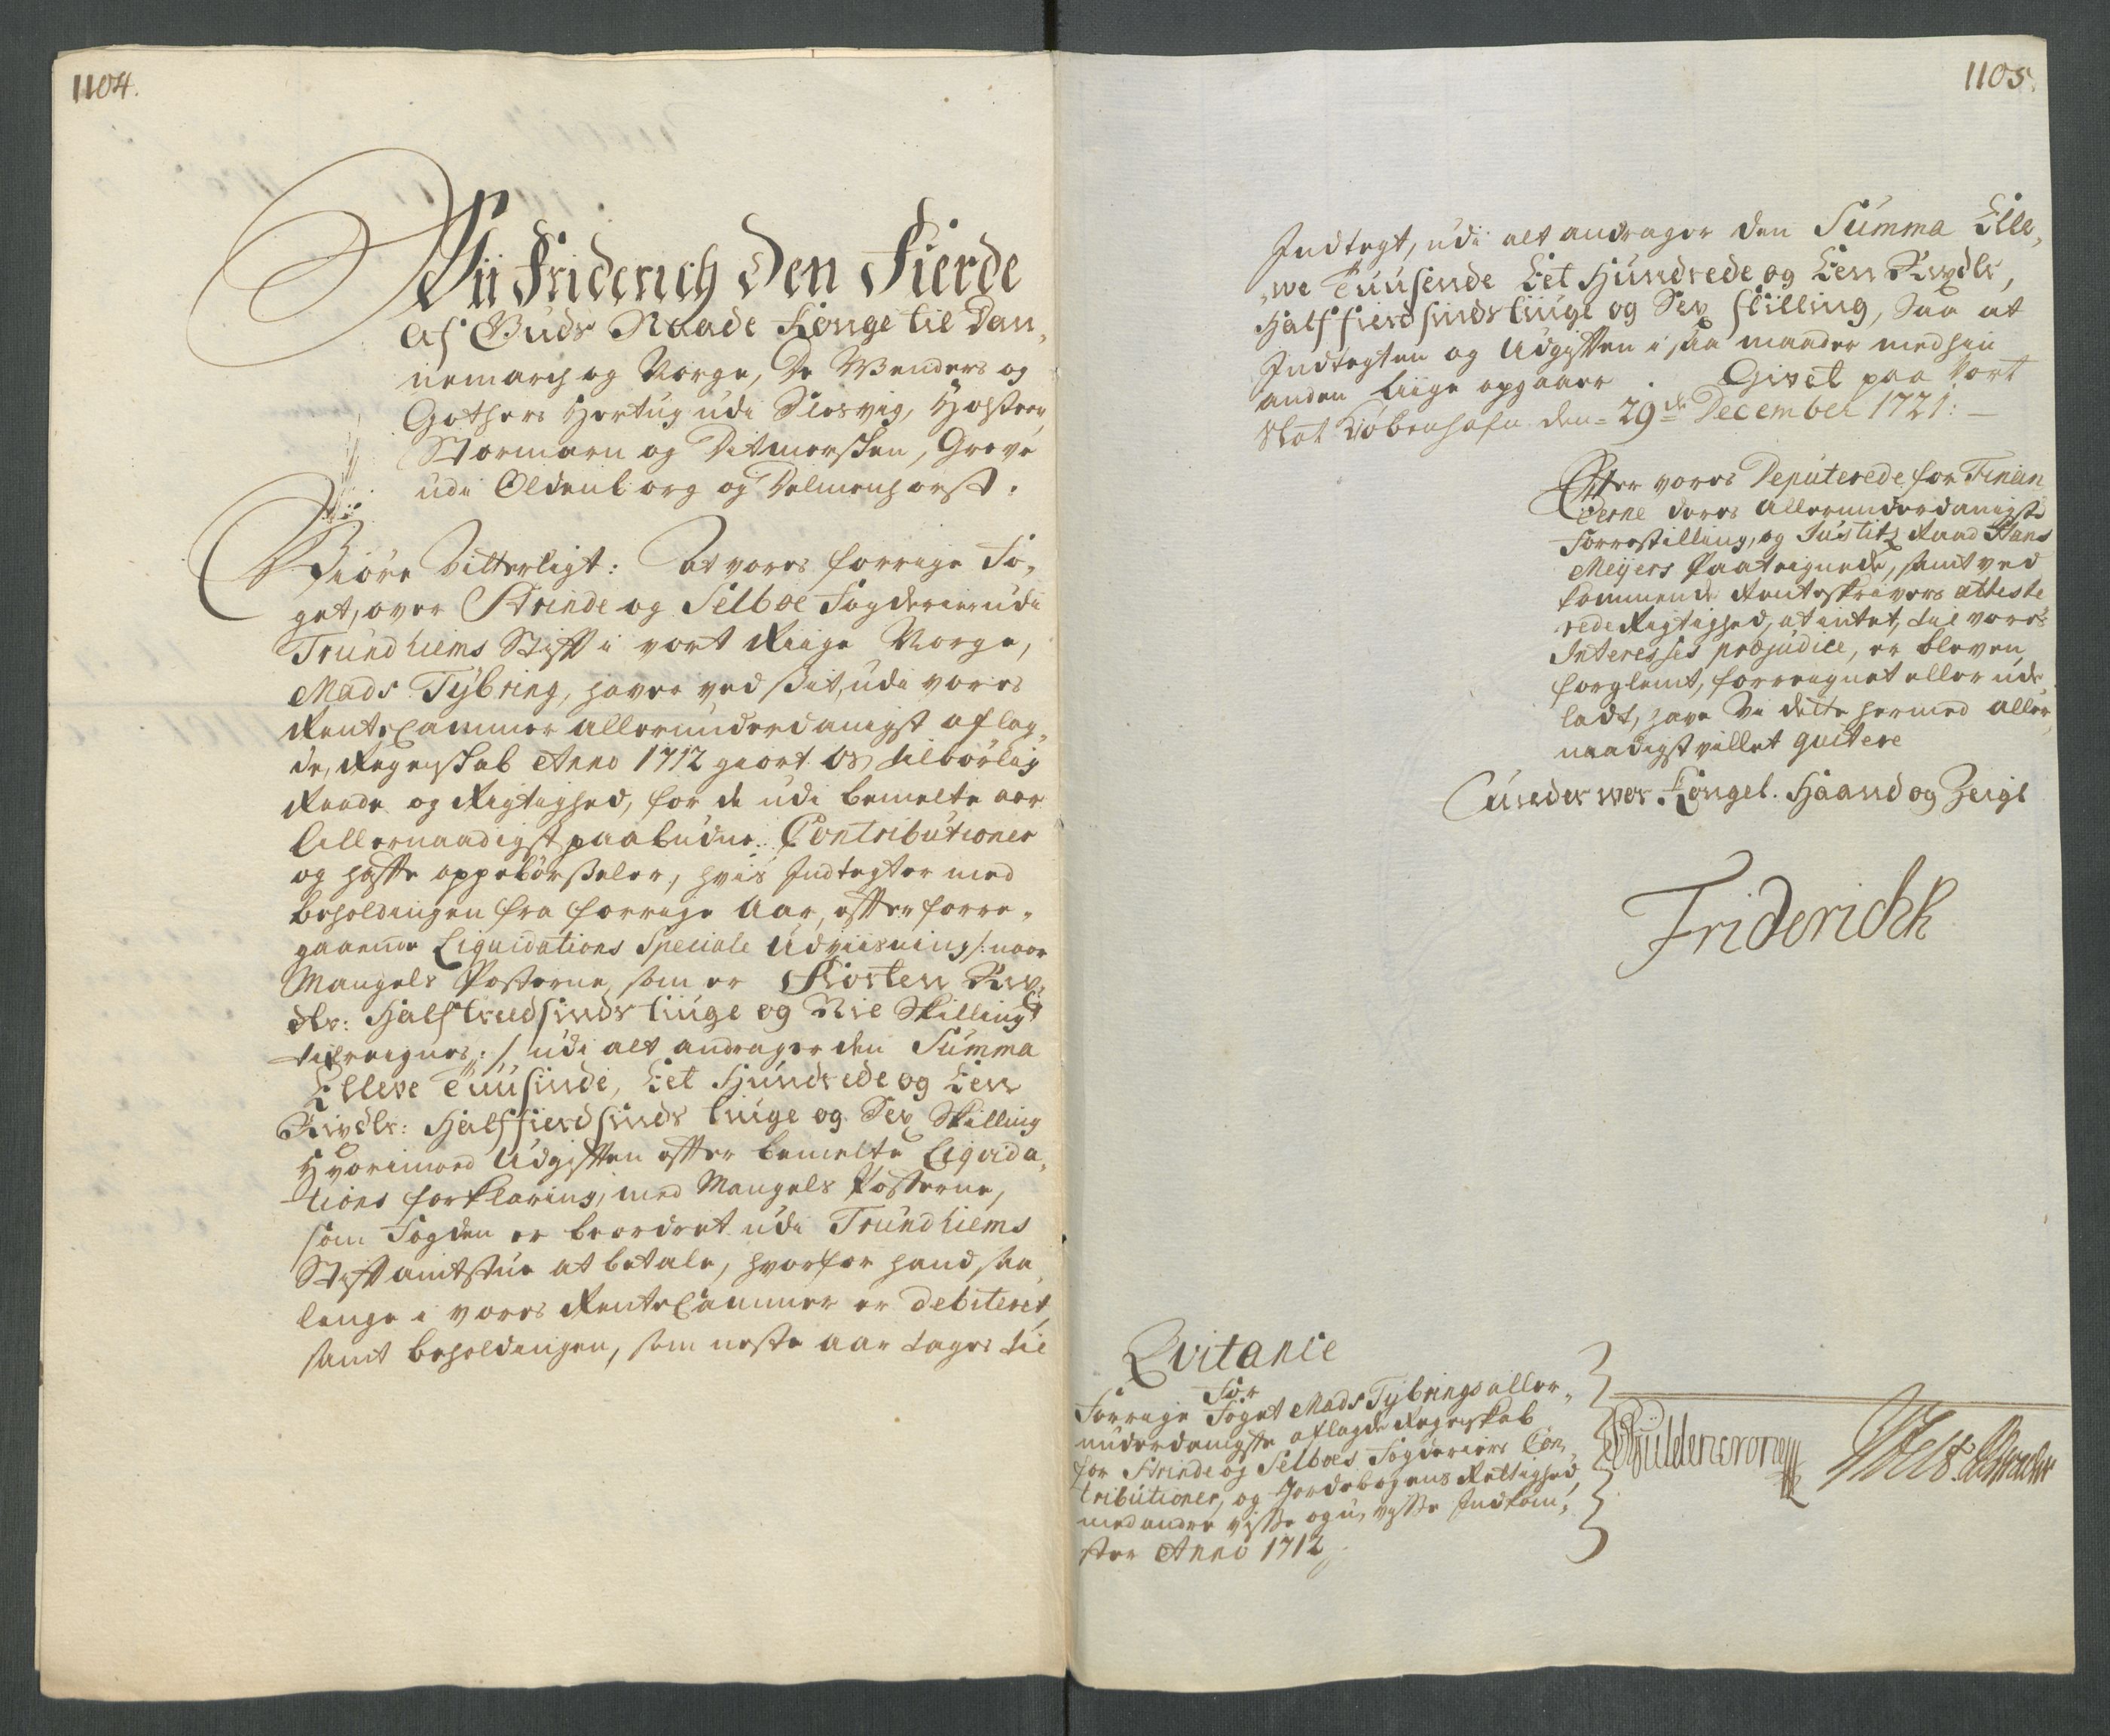 1104.
Vii Friderich Den Fierde
Af Guds Naade Konge til Dan„
nemarch og Norge, De Wenders og
Gothers Hertug udi Slesvig, Holsteen,
Stormarn og Ditmersken, Greve
udi Oldenborg og Delmenhorst.
Giöre Vitterligt: At vores forrige Fo„
get, over Strinde og Selboe Fogderier udi
Trundhiems Stifft i vort Riige Norge,
Mads Tÿbring, haver ved sit, udi vores
RenteCammer allerunderdanigst aflag„
de, Regenskab Anno 1712 giort Os tilbörlig
Reede og Rigtighed, for de udi bemelte aar
Allernaadigst paabudne Contributioner
og haffte oppebörseler, hvis Indtegter med
beholdingen fra forrige Aar, effter forre„
gaaende Liquidations Speciale Udviisning /: naar
Mangels Posterne, som er Fiorten Rix„
dlr: Halftredsinds tiuge og Nie Skilling
tilreignes :/ udi alt andrager den Summa
Elleve Tuusinde, Eet Hundrede og Een
Rixdlr: Halffierdsinds tiuge og Sex Skilling
Hvorimod Udgifften effter bemelte Liqvida„
tions forklaring, med Mangels Posterne,
som Fogden er beordret udi Trundhiems
Stifftamtstue at betale, hvorfor hand saa
lenge i vores RenteCammer er debiteret,
samt beholdingen, som neste aar tages til
1105.
Indtegt, udi alt andrager den Summa Elle„
„ve Tuusende Eet Hundrede og Een Rixdlr,
Halffierdsindstiuge og Sex skilling, Saa at
Indtegten og Udgifften i saa maader med hin
anden liige opgaaer. Givet paa Vort
Slot Kiöbenhafn den 29de December 1721:
Effter vores Deputerede for Finan
cerne deres Allerunderdanigste
Forrestilling, og Justitz Raad Hans
Meÿers Paateignede, samt ved
kommende Renteskrivers atteste
rede Rigtighed, at intet, til vores
Interesses præjudice, er bleven
forglemt, forreignet eller ude
ladt, have Vi dette hermed aller„
naadigst villet quitere
Under vor Kongel. Haand og Zeigl
Friderich R
Qvitance
For
Forrige Foget Mads Tÿbrings aller„
underdanigste aflagde Regenskab
for Strinde og Selboes Fogderiers Con„
tributioner, og Jordebogens Rettighed
med andre visse og u„visse Indkom„
ster Anno 1712
Güldencrone